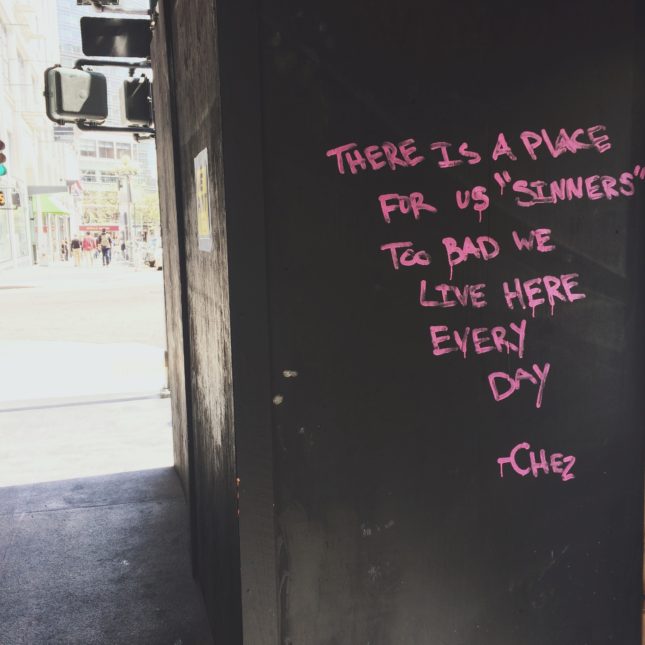 THERE IS A PLACE
FOR US "SINNERS"
TOO BAD WE
LIVE HERE
EVERY
DAY
-CHEZ